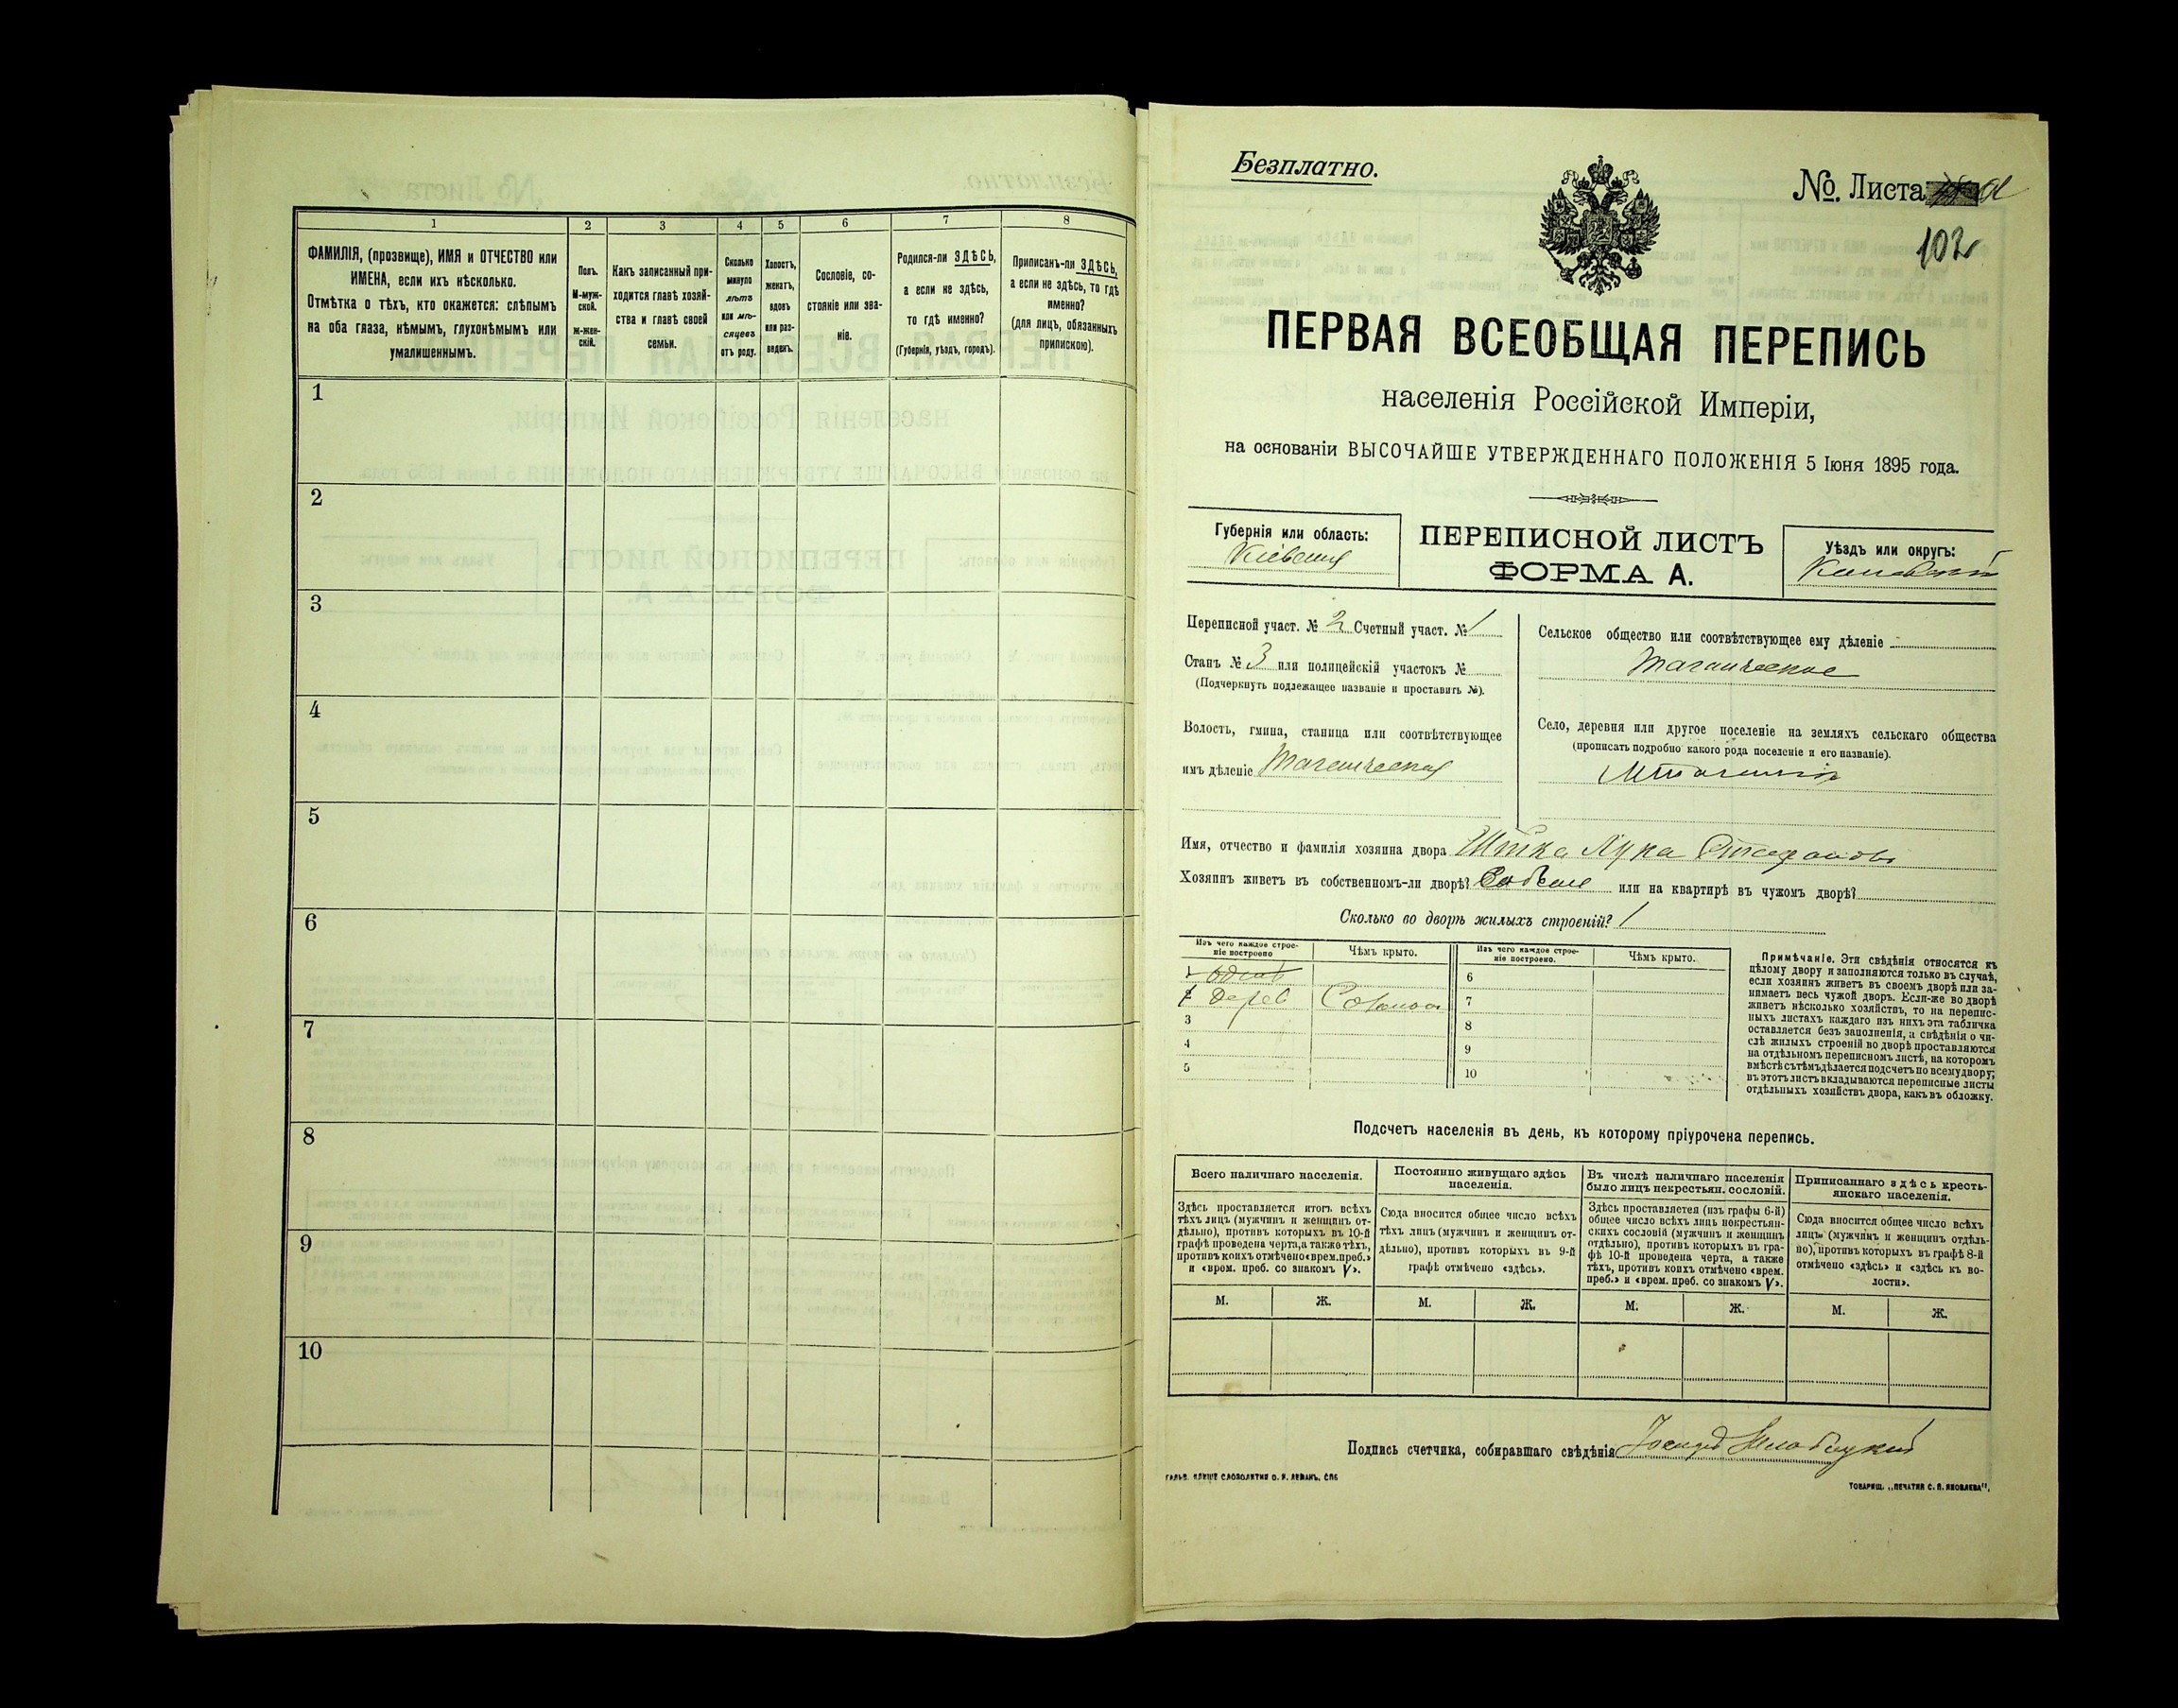 1 2 3 4 5 6 7 8
ФАМИЛІЯ, (прозвище), ИМЯ и ОТЧЕСТВО или
ИМЕНА, если ихъ нѣсколько.
Отмѣтка о тѣхъ, кто окажется: слѣпымъ
на оба глаза, нѣмымъ, глухонѣмымъ или
умалишеннымъ.
Полъ.
М-муж-
ской.
ж-жен-
скій.
Какъ записанный при-
ходится главѣ хозяй-
ства и главѣ своей
семьи.
Сколько
минуло
лѣтъ
или мѣ-
сяцевъ
отъ роду.
Холостъ,
женатъ,
вдовъ
или раз-
веденъ.
Сословіе, со-
стояніе или зва-
ніе.
Родился-ли ЗДѢСЬ,
а если не здѣсь,
то гдѣ именно?
(Губернія, уѣздъ, городъ).
Приписанъ-ли ЗДѢСЬ,
а если не здѣсь, то гдѣ
именно?
(для лицъ, обязанныхъ
припискою).
1
2
3
4
5
6
7
8
9
10
Безплатно.
№. Листа
102
ПЕРВАЯ ВСЕОБЩАЯ ПЕРЕПИСЬ
населенія Россійской Имперіи,
на основаніи ВЫСОЧАЙШЕ УТВЕРЖДЕННАГО ПОЛОЖЕНІЯ 5 Іюня 1895 года.
Губернія или область:
Кіевская
ПЕРЕПИСНОЙ ЛИСТЪ
ФОРМА А.
Уѣздъ или округъ:
Каневскій
Переписной участ. № 2 Счетный участ. № 1
Станъ № 3 или полицейскій участокъ №
(Подчеркнуть подлежащее названіе и проставить №).
Волость, гмина, станица или соотвѣтствующее
имъ дѣленіе Таганчская
Сельское общество или соотвѣтствующее ему дѣленіе
Таганчское
Село, деревня или другое поселеніе на земляхъ сельскаго общества
(прописать подробно какого рода поселеніе и его названіе).
Имя, отчество и фамилія хозяина двора Лука Стефановъ
Хозяинъ живетъ въ собственномъ-ли дворѣ? или на квартирѣ въ чужомъ дворѣ?
Сколько во дворѣ жилыхъ строеній? 1
Изъ чего каждое строе-
ніе построено
Чѣмъ крыто.
Изъ чего каждое строе-
ніе построено.
Чѣмъ крыто.
1
дерев Солома
3
4
5
6
7
8
9
10
Примѣчаніе. Эти свѣдѣнія относятся къ
цѣлому двору и заполняются только въ случаѣ,
если хозяинъ живетъ въ своемъ дворѣ или за-
нимаетъ весь чужой дворъ. Если-же во дворѣ
живетъ нѣсколько хозяйствъ, то на перепис-
ныхъ листахъ каждаго изъ нихъ эта табличка
оставляется безъ заполненія, а свѣдѣнія о чи-
слѣ жилыхъ строеній во дворѣ проставляются
на отдѣльномъ переписномъ листѣ, на которомъ
вмѣстѣ съ тѣмъ дѣлается подсчетъ по всему двору;
въ этотъ листъ вкладываются переписные листы
отдѣльныхъ хозяйствъ двора, какъ въ обложку.
Подсчетъ населенія въ день, къ которому пріурочена перепись.
Всего наличнаго населенія.
Здѣсь проставляется итогъ всѣхъ
тѣхъ лицъ (мужчинъ и женщинъ от-
дѣльно), противъ которыхъ въ 10-й
графѣ проведена черта, а также тѣхъ,
противъ коихъ отмѣчено «врем. преб.»
и «врем. преб. со знакомъ V».
Постоянно живущаго здѣсь
населенія.
Сюда вносится общее число всѣхъ
тѣхъ лицъ (мужчинъ и женщинъ от-
дѣльно), противъ которыхъ въ 9-й
графѣ отмѣчено «здѣсь».
Въ числѣ наличнаго населенія
было лицъ некрестьян. сословій.
Здѣсь проставляется (изъ графы 6-й)
общее число всѣхъ лицъ некрестьян-
скихъ сословій (мужчинъ и женщинъ
отдѣльно), противъ которыхъ въ гра-
фѣ 10-й проведена черта, а также
тѣхъ, противъ коихъ отмѣчено «врем.
преб.» и «врем. преб. со знакомъ V».
Приписаннаго здѣсь кресть-
янскаго населенія.
Сюда вносится общее число всѣхъ
лицъ (мужчинъ и женщинъ отдѣль-
но), противъ которыхъ въ графѣ 8-й
отмѣчено «здѣсь» и «здѣсь къ во-
лости».
М. Ж. М. Ж. М. Ж. М. Ж.
Подпись счетчика, собиравшаго свѣдѣнія
ГАЛЬВ. КЛИШЕ СЛОВОЛИТНИ О. И. ЛЕМАНЪ. СПБ
ТОВАРИЩ. „ПЕЧАТНЯ С. П. ЯКОВЛЕВА“.